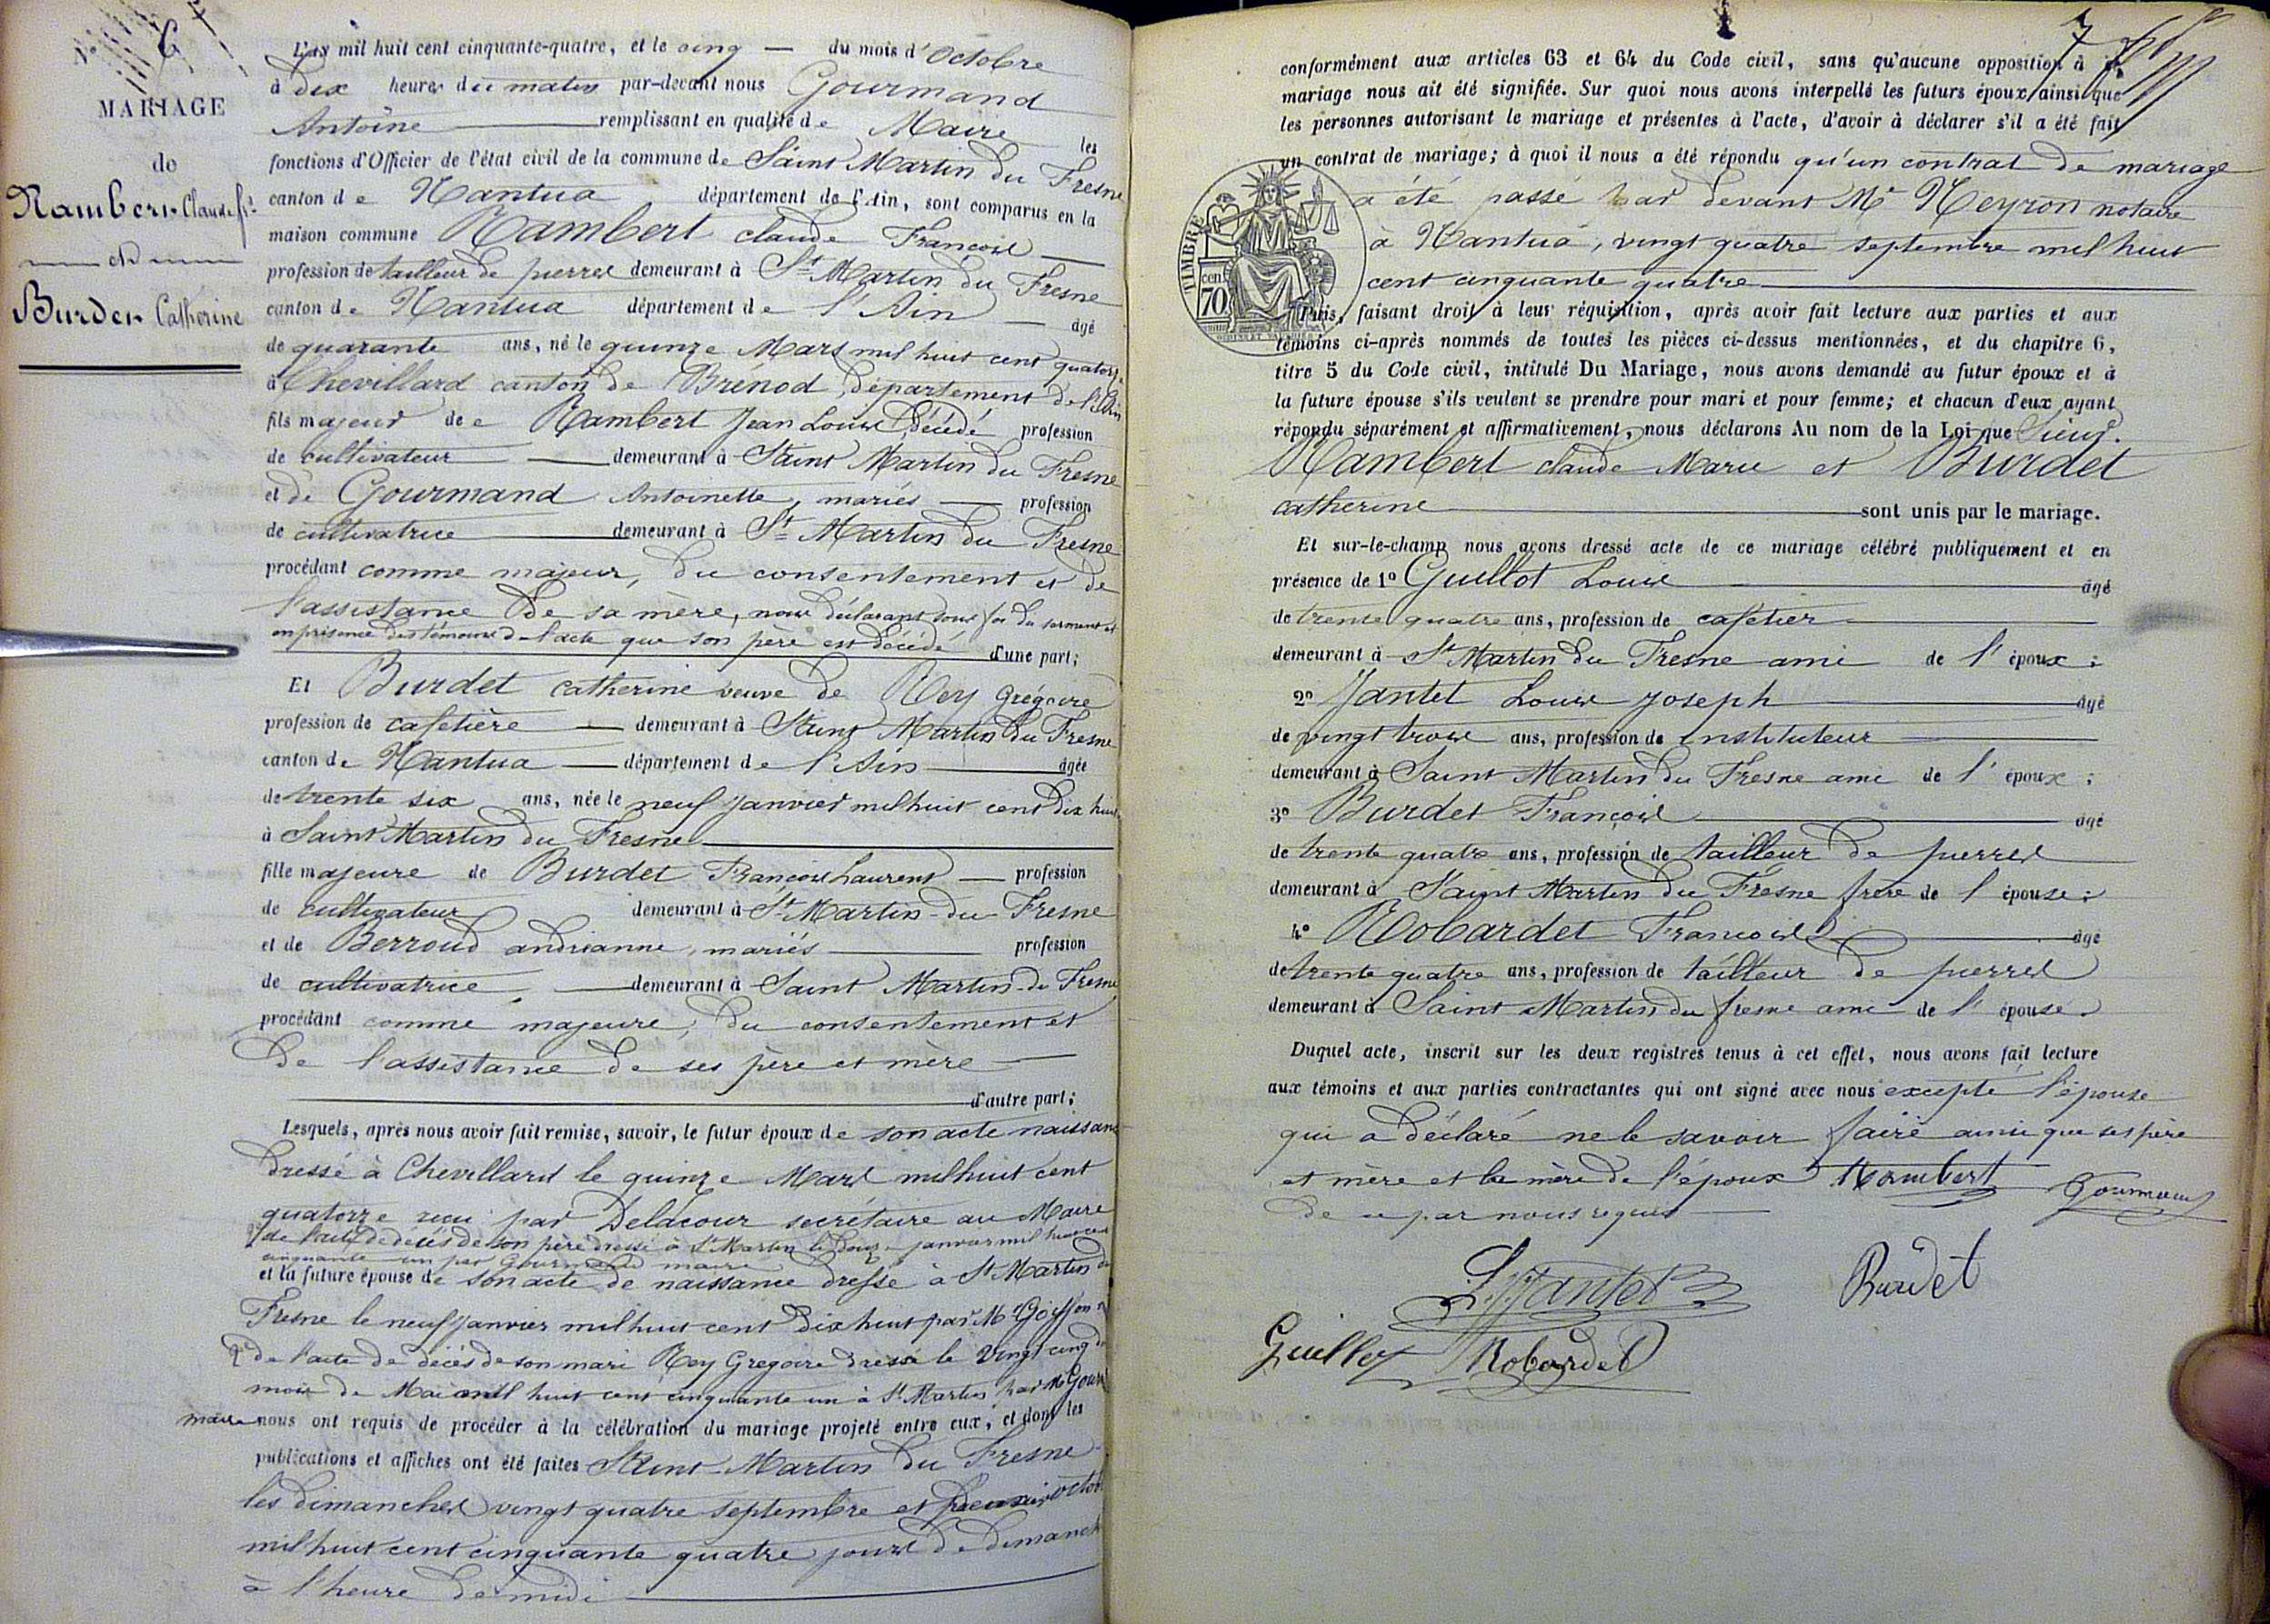 N.° 6
MARIAGE
de
Rambert Claude f.s
et
Burdet Catherine
L'an mil huit cent cinquante-quatre, et le cinq du mois d'Octobre
à dix heures du matin par-devant nous Gourmand
Antoine remplissant en qualité de Maire les
fonctions d'Officier de l'état civil de la commune de Saint Martin du Fresne
canton de Nantua département de l'Ain, sont comparus en la
maison commune Rambert claude François
profession de tailleur de pierres demeurant à St Martin du Fresne
canton de Nantua département de l'Ain âgé
de quarante ans, né le quinze Mars mil huit cent quatorze
à Chevillard canton de Brénod, département de l'Ain
fils majeur de Rambert Jean Louis, décédé profession
de cultivateur demeurant à Saint Martin du Fresne
et de Gourmand Antoinette, mariés profession
de cultivatrice demeurant à St Martin du Fresne
procédant comme majeur, du consentement et de
l'assistance de sa mère, nous déclarant sous foi du serment et
en présence des témoins de l'acte que son père est décédé d'une part;
Et Burdet catherine veuve de Rey Grégoire
profession de cafetière demeurant à Saint Martin du Fresne
canton de Nantua département de l'Ain âgée
de trente six ans, née le neuf Janvier mil huit cent dix huit
à Saint Martin du Fresne
fille majeure de Burdet François Laurent profession
de cultivateur demeurant à St Martin du Fresne
et de Berroud andrianne, mariés profession
de cultivatrice demeurant à Saint Martin du Fresne
procédant comme majeure, du consentement et
de l'assistance de ses père et mère
d'autre part;
Lesquels, après nous avoir fait remise, savoir, le futur époux de son acte naissance
dressé à Chevillard le quinze Mars mil huit cent
quatorze reçu par Delacour secrétaire au Maire
2° de l'acte de décès de son père dressé à St Martin le douze janvier mil huit cent
cinquante un par Gourmand maire
et la future épouse de son acte de naissance dressé à St Martin du
Fresne le neuf Janvier mil huit cent dix huit par Mr
2° de l'acte de décès de son mari Rey Gregoire dressé le vingt cinq du
mois de Mai mil huit cent cinquante un à St Martin par Mr Gourmand
maire nous ont requis de procéder à la célébration du mariage projeté entre eux, et dont les
publications et affiches ont été faites Saint Martin du Fresne
les dimanches vingt quatre septembre et premier octobre
mil huit cent cinquante quatre jours de dimanche
à l'heure de midi
7
conformément aux articles 63 et 64 du Code civil, sans qu'aucune opposition à ce
mariage nous ait été signifiée. Sur quoi nous avons interpellé les futurs époux, ainsi que
les personnes autorisant le mariage et présentes à l'acte, d'avoir à déclarer s'il a été fait
un contrat de mariage; à quoi il nous a été répondu qu'un contrat de mariage
a été passé par devant Me Neyron notaire
à Nantua, vingt quatre septembre mil huit
cent cinquante quatre
TIMBRE
cen
70
Puis, faisant droit à leur réquisition, après avoir fait lecture aux parties et aux
témoins ci-après nommés de toutes les pièces ci-dessus mentionnées, et du chapitre 6,
titre 5 du Code civil, intitulé Du Mariage, nous avons demandé au futur époux et à
la future épouse s'ils veulent se prendre pour mari et pour femme; et chacun d'eux ayant
répondu séparément et affirmativement, nous déclarons Au nom de la Loi que Sieur
Rambert claude Marie et Burdet
catherine sont unis par le mariage.
Et sur-le-champ nous avons dressé acte de ce mariage célébré publiquement et en
présence de 1° Guillot Louis âgé
de trente quatre ans, profession de cafetier
demeurant à St Martin du Fresne ami de l'époux;
2° Jantet Louis Joseph âgé
de vingt trois ans, profession de instituteur
demeurant à Saint Martin du Fresne ami de l'époux;
3° Burdet François âgé
de trente quatre ans, profession de tailleur de pierres
demeurant à Saint Martin du Fresne frère de l'épouse;
4° Robardet François âgé
de trente quatre ans, profession de tailleur de pierres
demeurant à Saint Martin du fresne ami de l'épouse.
Duquel acte, inscrit sur les deux registres tenus à cet effet, nous avons fait lecture
aux témoins et aux parties contractantes qui ont signé avec nous excepté l'épouse
qui a déclaré ne le savoir faire ainsi que ses père
et mère et la mère de l'époux Rambert Gourmand
de ce par nous requis
L J Jantet Burdet
Guillot Robardet